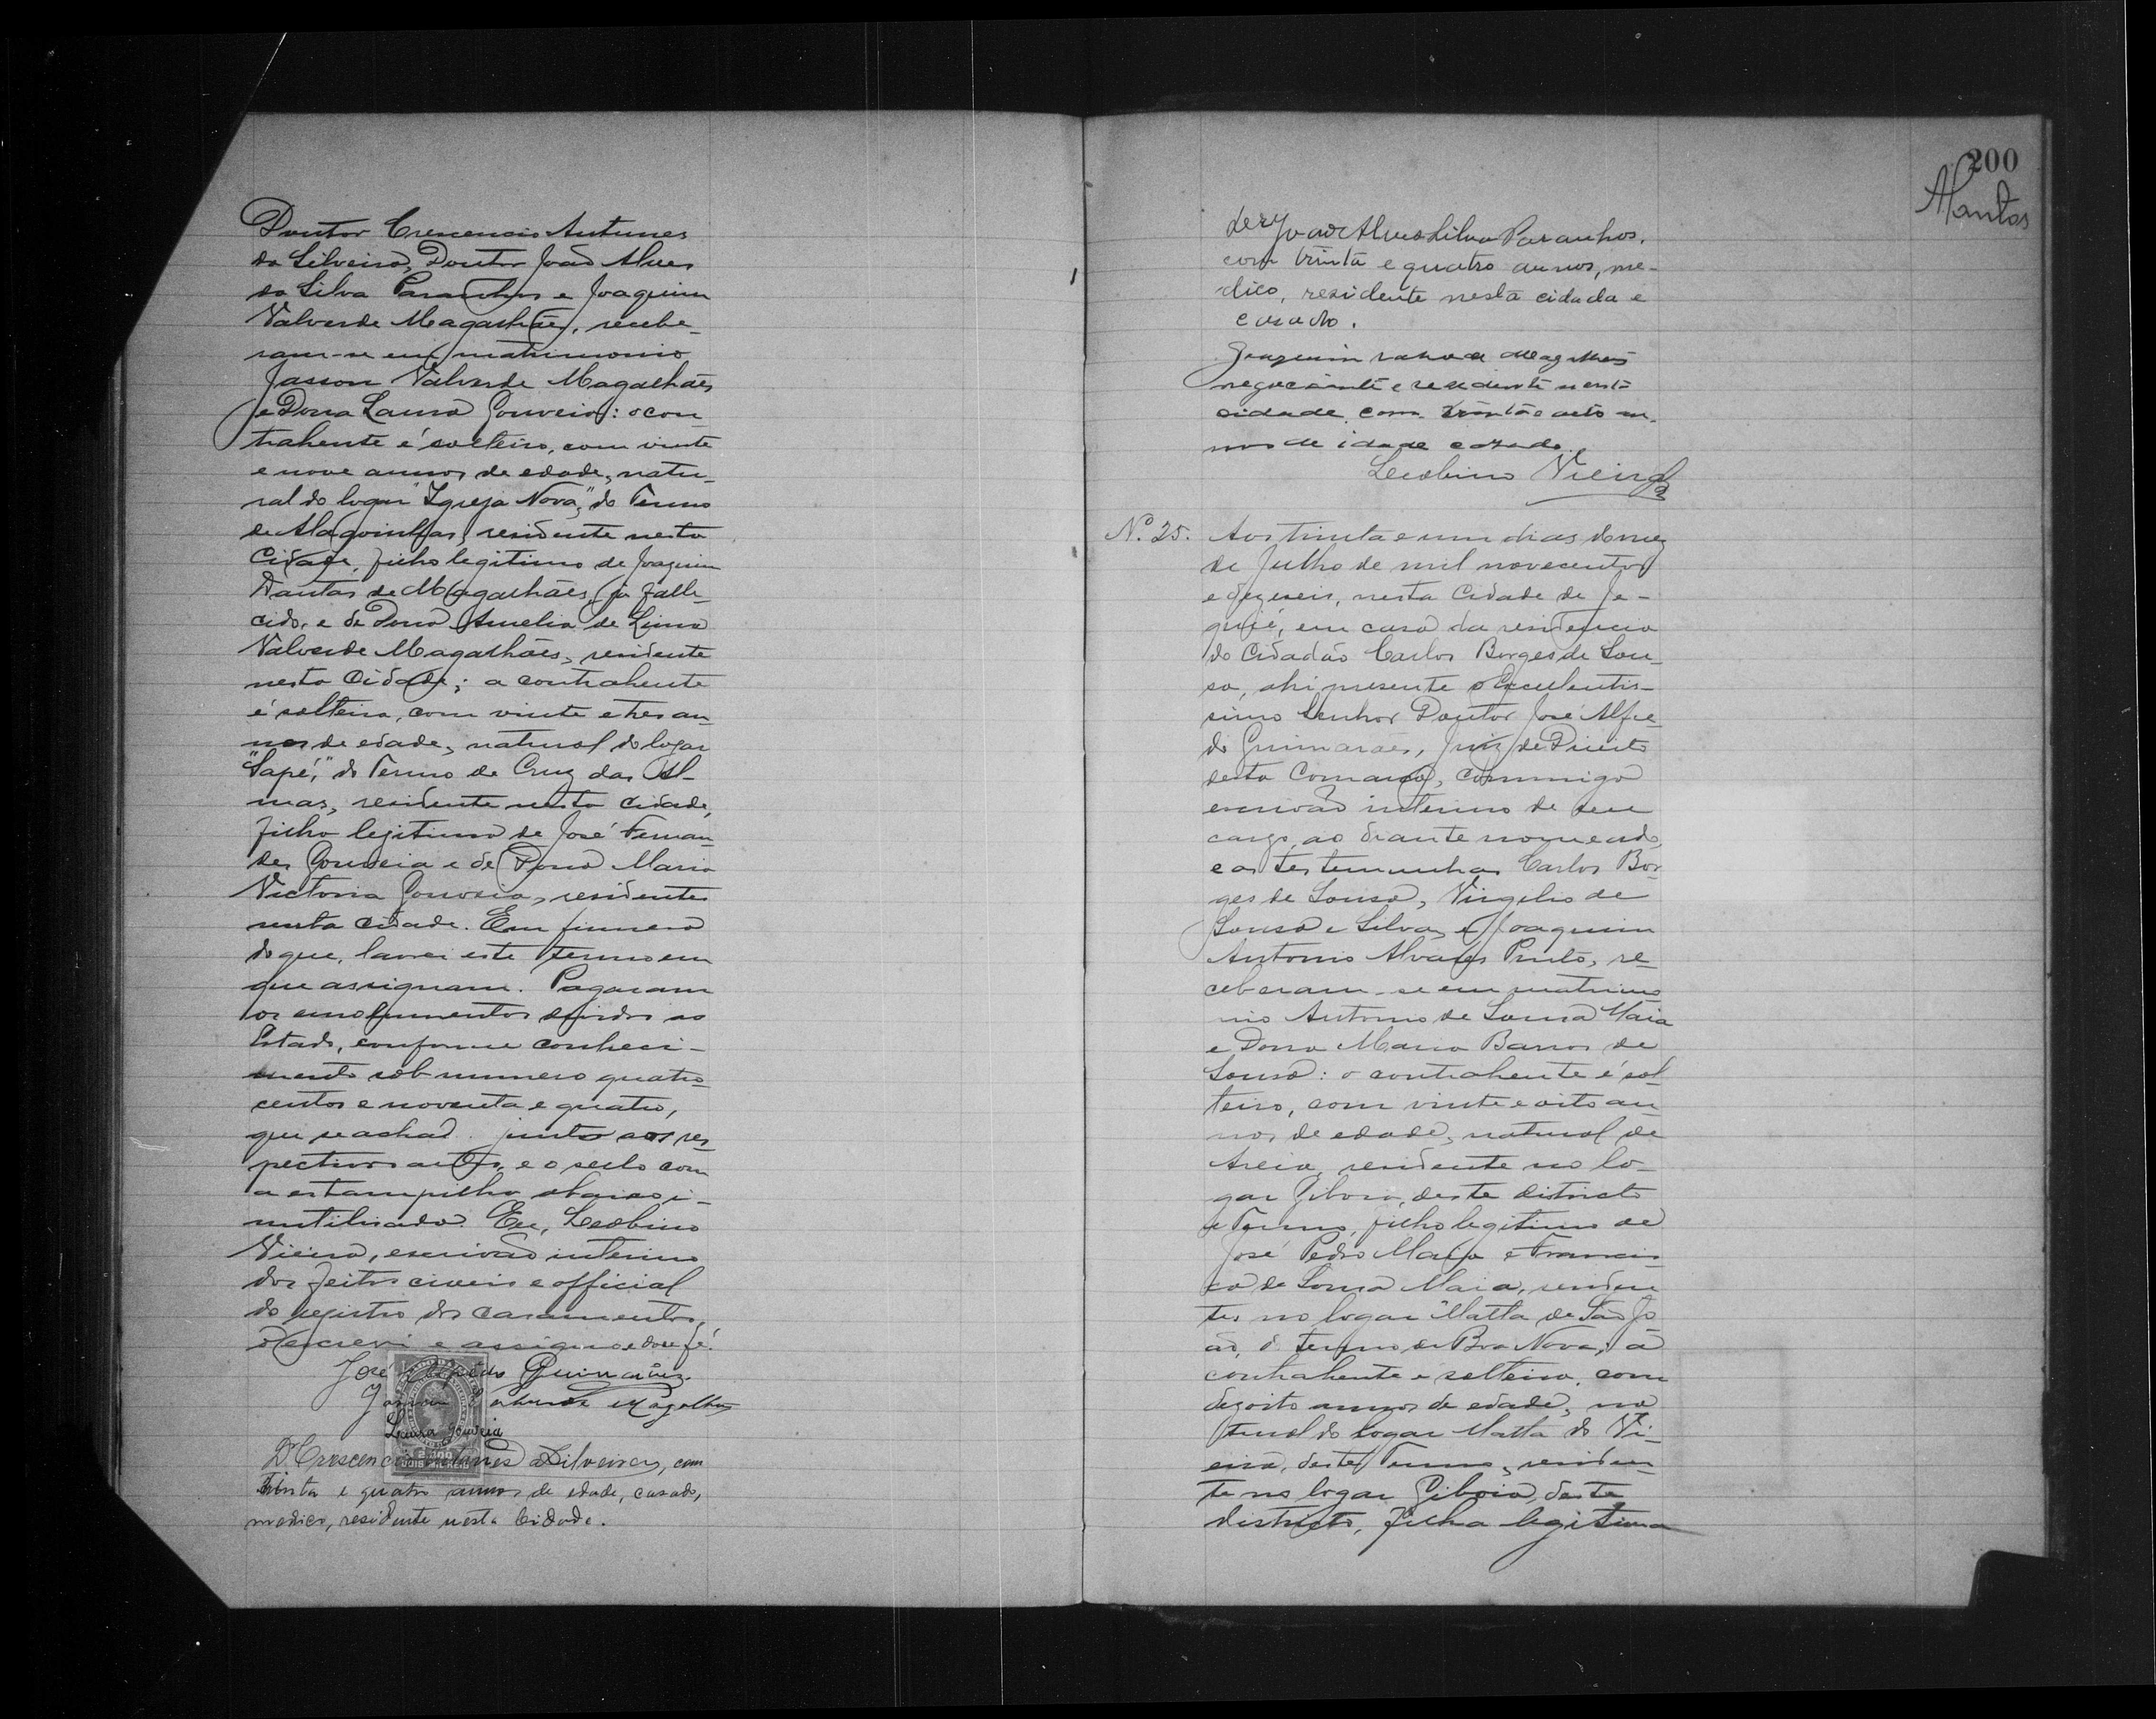 Doutor Crescencio Antunes
da Silveira, Doutor João Alves
da Silva Paranhos e Joaquim
Valverde Magalhães, recebe-
ram-se em matrimonio
Jasson Valverde Magalhães
e Dona Laura Gouveia: o con-
trahente é solteiro, com vinte
e nove annos de edade, natu-
ral do logar "Igreja Nova", do Termo
de Alagoinhas, residente nesta
Cidade, filho legitimo de Joaquim
Dantas de Magalhães, já falle-
cido, e de Dona Amelia de Lima
Valverde Magalhães, residente
nesta Cidade; a contrahente
é solteira, com vinte e tres an-
nos de edade, natural do logar
"Sapé", do Termo de Cruz das Al-
mas, residente nesta cidade,
filha legitima de José Fernan-
des Gouveia e de Dona Maria
Victoria Gouveia, residentes
nesta cidade. Em firmeza
do que, lavrei este termo em
que assignam. Pagaram
os emolumentos devidos ao
Estado, conforme conheci-
mento sob numero quatro-
centos e noventa e quatro,
que se acha junto aos res-
pectivos autos, e o sello com
a estampilha abaixo i-
nutilisada. Eu, Leobino
Vieira, escrivão interino
dos feitos civeis e official
do registro dos casamentos,
o escrevi e assigno e dou fé.
José Alfredo Guimarães.
Jasson Valverde Magalhães
Laura Gouveia
Dr Crescencio Antunes da Silveira, com
trinta e quatro annos de edade, casado,
medico, residente nesta Cidade.
200
Mantos
Dr João Alves da Silva Paranhos,
com trinta e quatro annos, me-
dico, residente nesta cidade e
casado.
Joaquim Valverde Magalhães
negociante e residente nesta
cidade, com trinta e oito an-
nos de idade casado.
Leobino Vieira
Nº. 25. Aos trinta e um dias do mez
de Julho de mil novecentos
e dezeseis, nesta Cidade de Je-
quié, em casa da residencia
do Cidadão Carlos Borges de Sou-
sa, ahi presente o Excellentis-
simo Senhor Doutor José Alfre-
do Guimarães, Juiz de Direito
desta Comarca, commigo
escrivão interino de seu
cargo, ao diante nomeado,
e as testemunhas Carlos Bor-
ges de Sousa, Virgilio de
Sousa e Silva, e Joaquim
Antonio Alvares Pinto, re-
ceberam-se em matrimo-
nio Antonio de Sousa Maia
e Dona Maria Barros de
Sousa: o contrahente é sol-
teiro, com vinte e oito an-
nos de edade, natural de
Areia, residente no lo-
gar Giboia, deste districto
e Termo, filho legitimo de
José Pedro Maia e Francis-
ca de Sousa Maia, residen-
tes no logar "Matta de São Jo-
ão, do termo de Boa Nova; a
contrahente é solteira, com
dezoito annos de edade, na-
tural do logar Matta do Vi-
eira, deste Termo, residen-
te no logar Giboia, deste
districto, filha legitima